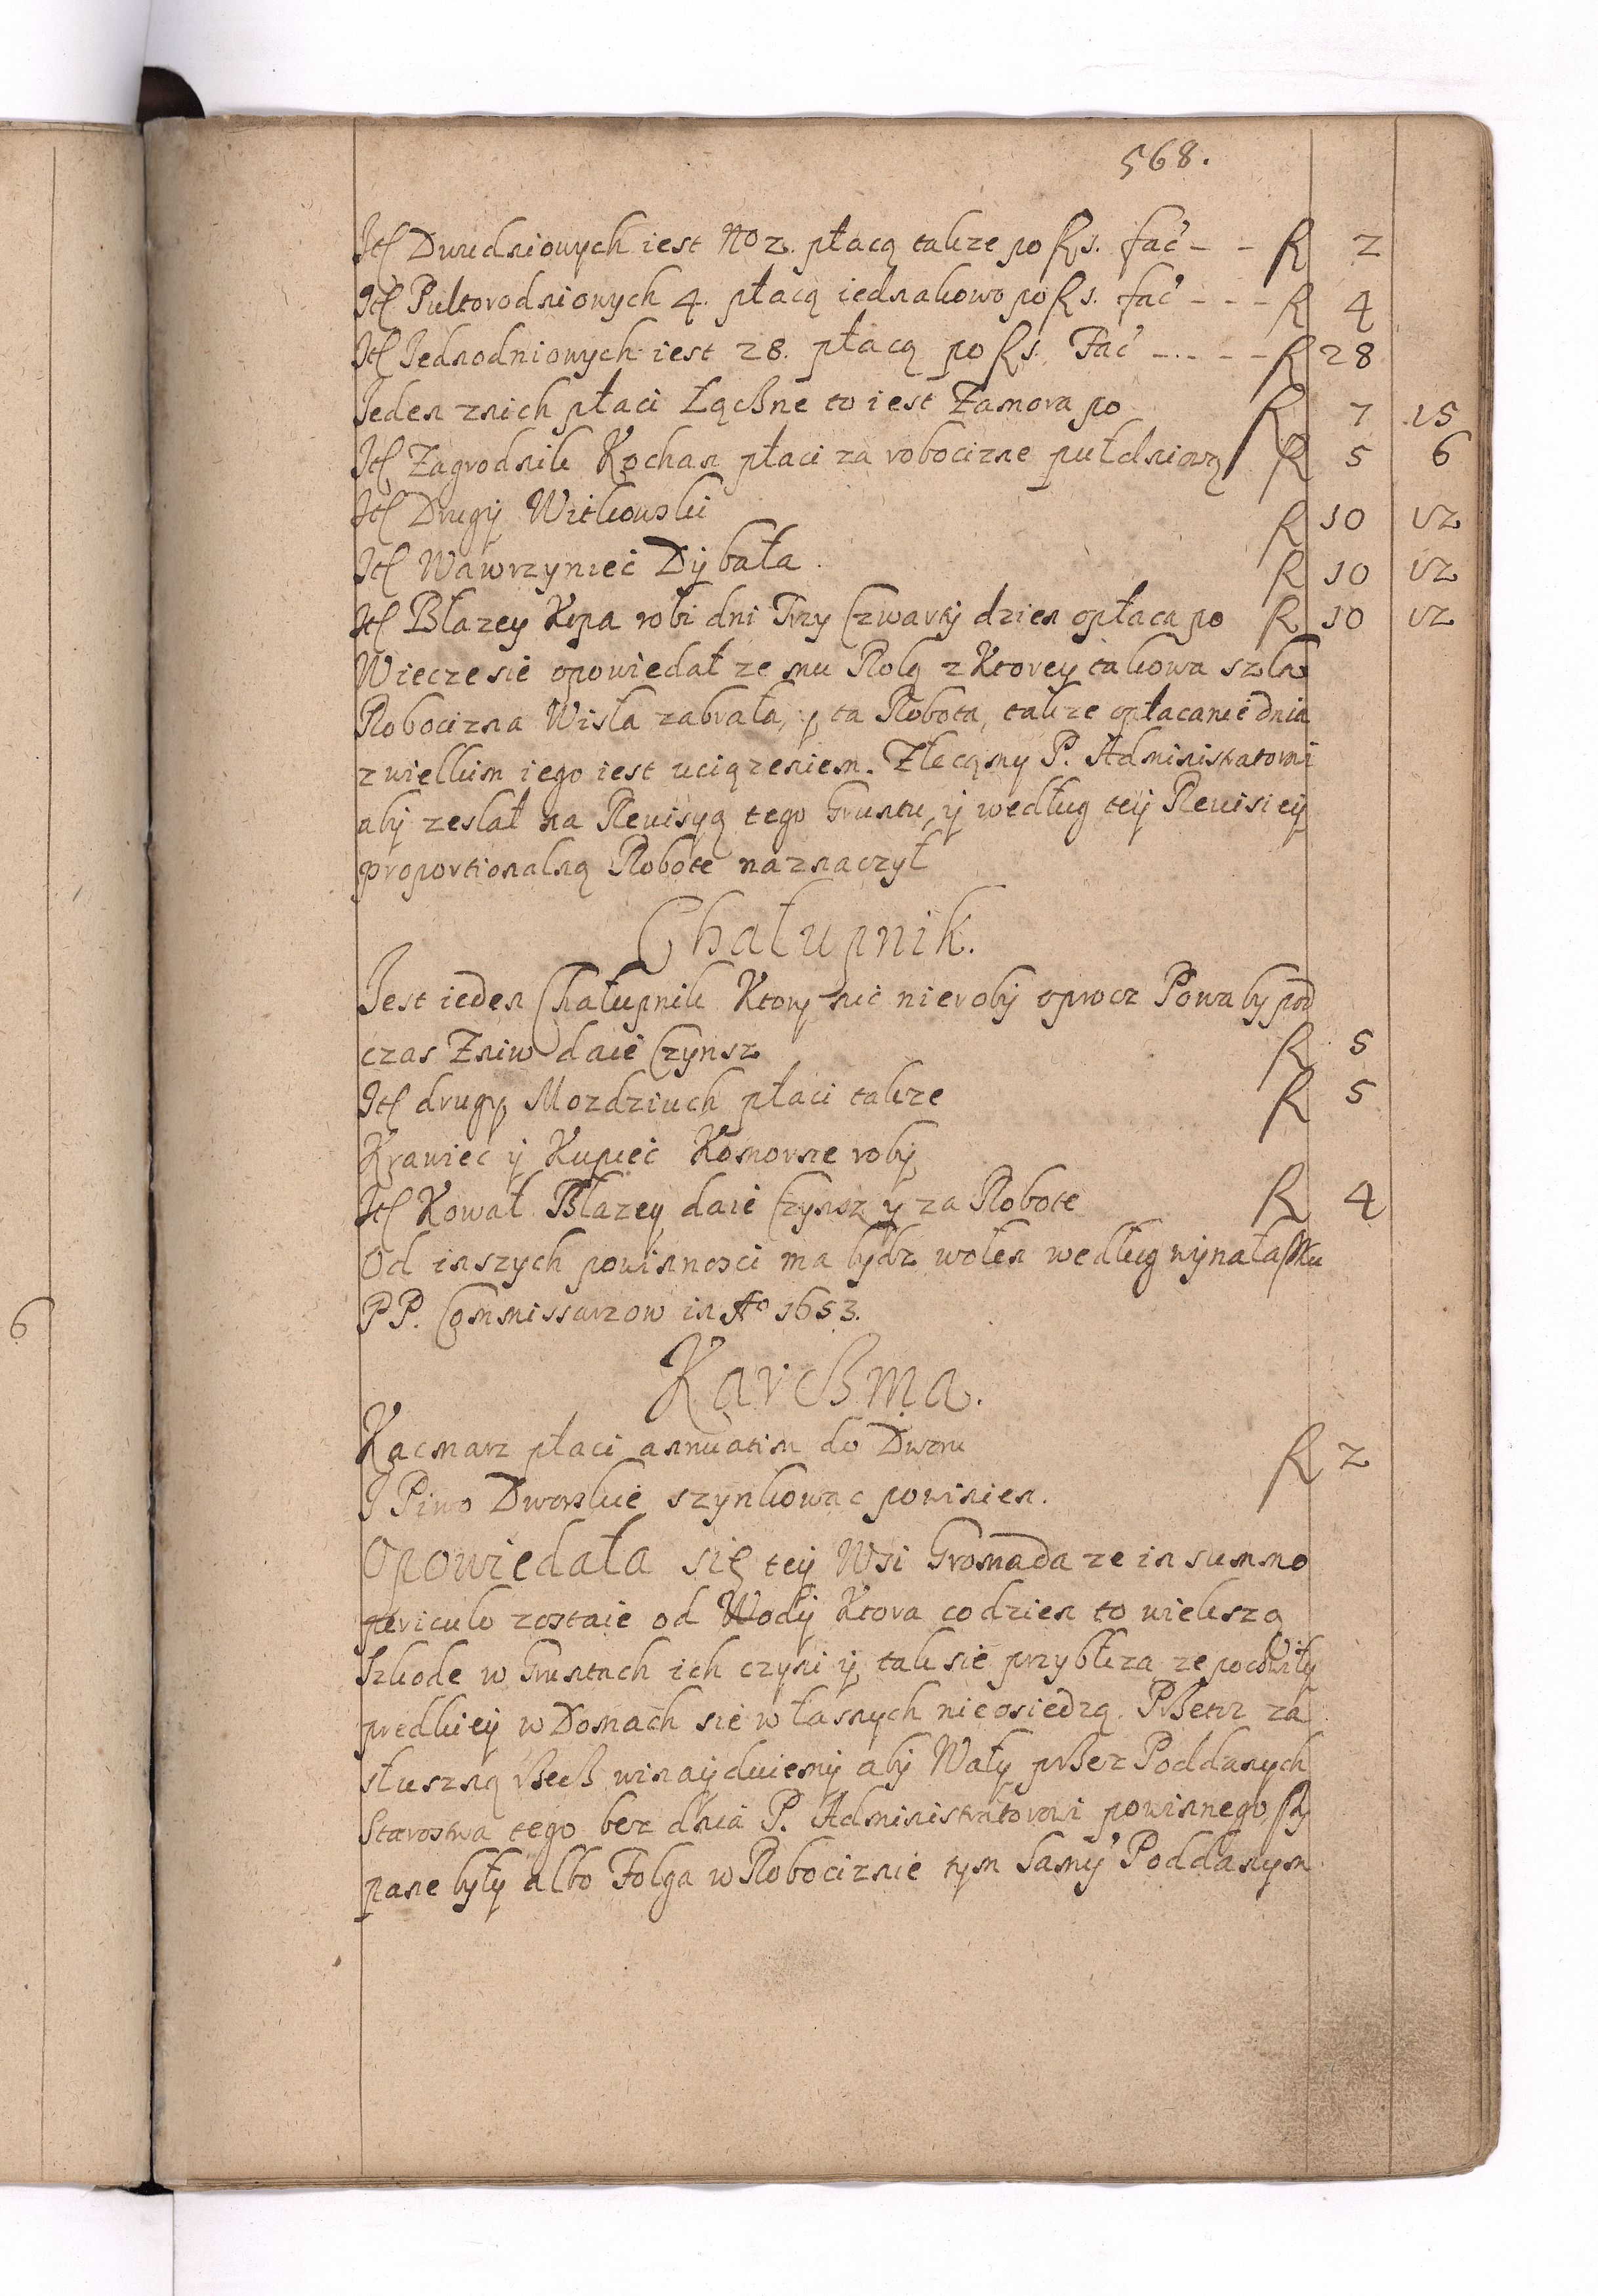 568.
Itē Dwudniowych iest No 2. płacą takze po R 1. fać - - R 2
Itē Pultorodniowych 4. płacą iednakowo po R 1. fać - - - R 4
Itē Iednodniowych iest 28. płacą po R 1. Fać - - - - R 28
Ieden znich płaci Łączne to iest Zamora po R 7 15
Itē Zagrodnik Kochan płaci za robocizne pułdniową R 5 6
Itē Drugÿ Witkowski R 10 12
Itē Wawrzynieć Dÿbała. R 10 12
Itē Błazey Kępa robi dni Trzy Czwartÿ dzien opłaca po R 10 12
Wiecze sie opowiedał ze mu Rolą z Ktorey takowa szła
Robocizna Wisła zabrała, y ta Robota, takze opłacanie dnia
z wielkim iego iest uciązeniem. Zlecąmy P. Administratorowi
abÿ zesłał na Revisyą tego Gruntu, ÿ według teÿ Revisieÿ
proportionalną Robote naznaczył
Chałupnik.
Iest ieden Chałupnik Ktory nic nierobÿ oprocz Powaby pod
czas Zniw daie Czynsz R 5
Itē drugÿ Mozdziuch płaci takze R 5
Krawiec ÿ Kupieć Komorne robÿ
Itē Kowal Błazey daie Czynsz ÿ za Robote R 4
Od inszych powinnosci ma bÿdz wolen według wÿnalasku
PP. Commissarzow in Ao 1653.
Karczma.
Kacmarz płaci annuatim do Dworu R 2
I Piwo Dworskie szynkowac powinien.
Opowiedała się teÿ Wsi Gromada ze in summo
periculo zostaie od Wodÿ Ktora codzien to wieksza
Szkode w Gruntach ich czyni ÿ tak sie przybliza ze pochwily
predkieÿ w Domach sie własnych nieosiedzą. Przetoz za
słuszną rzecz winaÿduiemÿ abÿ Wały przez Poddanych
Starostwa tego bez dnia P. Administratorowi powinnego sÿ
pane byłÿ albo Folga w Robociznie tym samÿ Poddanym
6